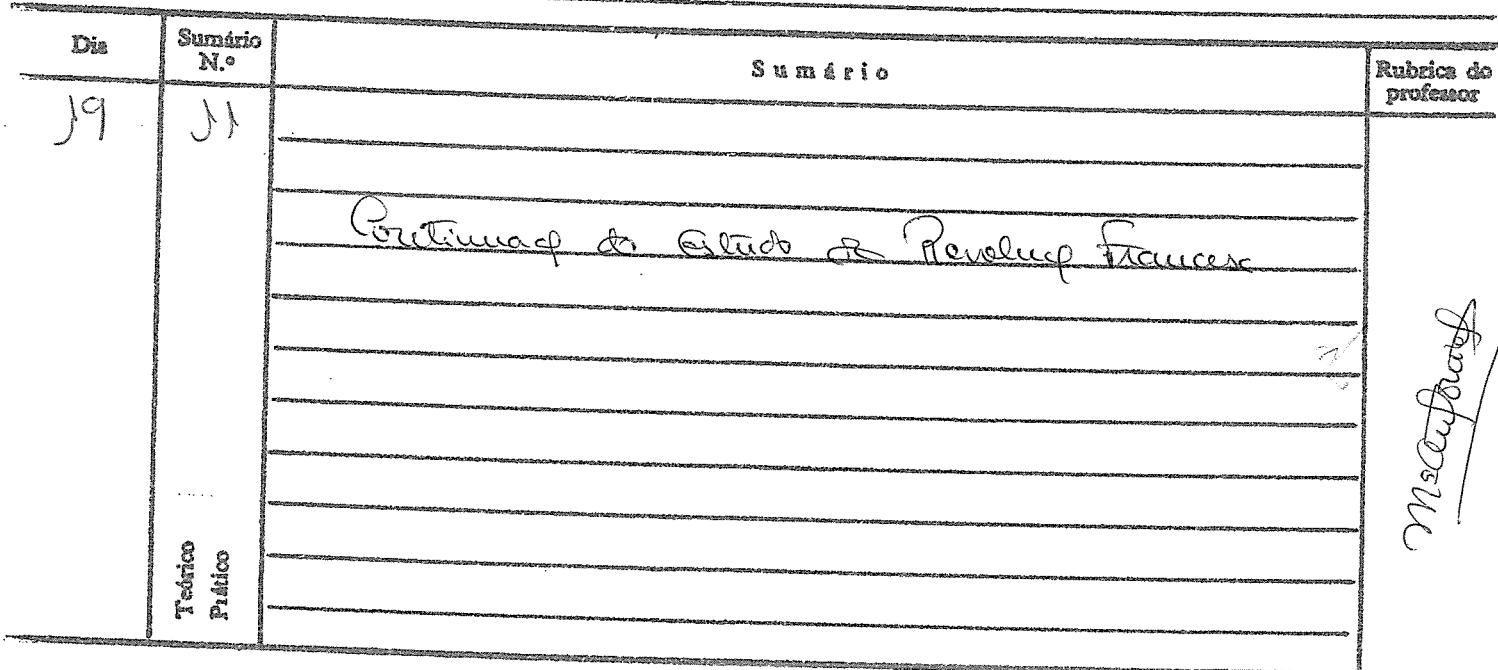 Dia
Sumário
N.º
Sumário
Rubrica do
professor
19
11
Continuaç do Estudo da Revoluç Francesa
Teórico
Prático